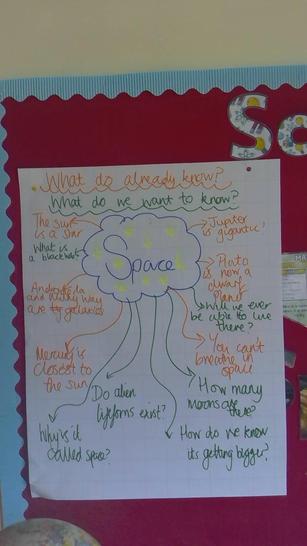 Sc
What do already know?
What do we want to know?
The sun
is a star
Jupiter
is gigantic!
What is
a blackhole?
Space!
Pluto
is now a
dwarf
planet
Andromeda
and milky way
are galaxies
Will we ever
be able to live
there?
Mercury is
closest to
the sun
You can't
breathe in
space
Do alien
lifeforms exist?
How many
moons are
there?
Why is it
called space?
How do we know
its getting bigger?